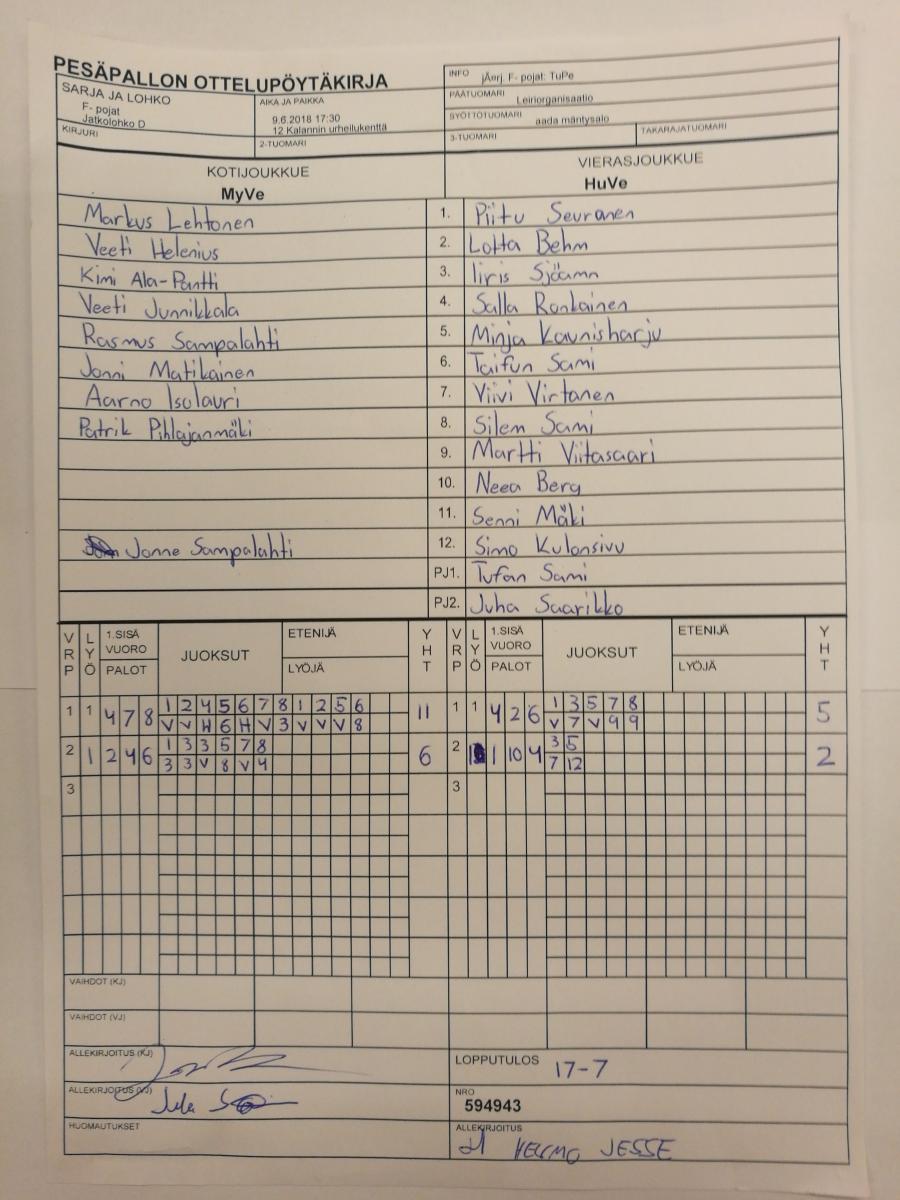 PESÄPALLON OTTELUPÖYTÄKIRJA
SARJA JA LOHKO
F- pojat
Jatkolohko D
KIRJURI
AIKA JA PAIKKA
9.6.2018 17:30
12 Kalannin urheilukenttä
2-TUOMARI
INFO jÄerj. F- pojat: TuPe
PÄÄTUOMARI
Leiriorganisaatio
SYÖTTÖTUOMARI aada mäntysalo
3-TUOMARI TAKARAJATUOMARI
KOTIJOUKKUE VIERASJOUKKUE
MyVe HuVe
Markus Lehtonen 1. Piitu Seuranen
Veeti Helenius 2. Lotta Behm
Kimi Ala-Pantti 3. Iiris Sjöämn
Veeti Junnikkala 4. Salla Ronkainen
Rasmus Sampalahti 5. Minja Kaunisharju
Jonni Matikainen 6. Taifun Sami
Aarno Isolauri 7. Viivi Virtanen
Patrik Pihlajanmäki 8. Silem Sami
9. Martti Viitasaari
10. Neea Berg
11. Senni Mäki
Jonne Sampalahti 12. Simo Kulonsivu
PJ1. Tufan Sami
PJ2. Juha Saarikko
VRP LYÖ 1.SISÄ VUORO PALOT JUOKSUT ETENIJÄ LYÖJÄ YHT VRP LYÖ 1.SISÄ VUORO PALOT JUOKSUT ETENIJÄ LYÖJÄ YHT
1 1 4 7 8 1 2 4 5 6 7 8 1 2 5 6 11 1 1 4 2 6 1 3 5 7 8 5
V V H 6 H V 3 V V V 8 V 7 V 9 9
2 1 2 4 6 1 3 3 5 7 8 6 2 1 10 4 3 5 2
3 3 V 8 V 4 7 12
3 3
VAIHDOT (KJ)
VAIHDOT (VJ)
ALLEKIRJOITUS (KJ)
LOPPUTULOS 17-7
ALLEKIRJOITUS (VJ)
NRO
594943
HUOMAUTUKSET
ALLEKIRJOITUS
JESSE